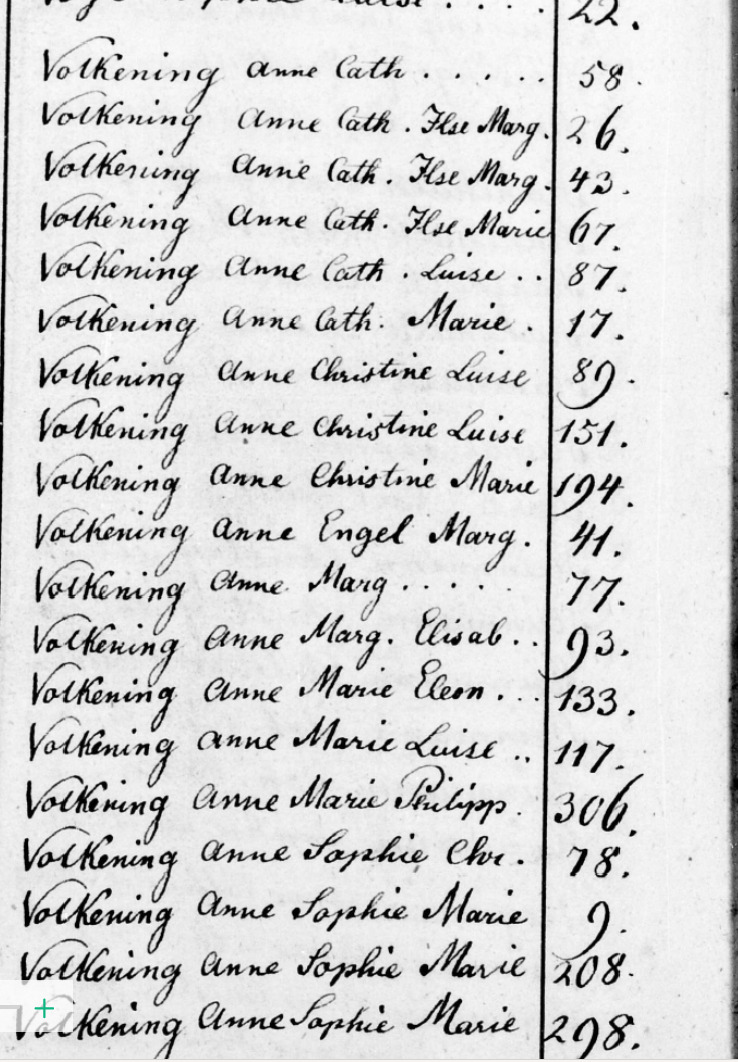 Sophie Luise . . . . 22.
Volkening Anne Cath . . . . . 58.
Volkening Anne Cath. Ilse Marg. 26.
Volkening Anne Cath. Ilse Marg. 43.
Volkening Anne Cath. Ilse Marie 67.
Volkening Anne Cath. Luise . . 87.
Volkening Anne Cath. Marie . 17.
Volkening Anne Christine Luise 89.
Volkening Anne Christine Luise 151.
Volkening Anne Christine Marie 194.
Volkening Anne Engel Marg. 41.
Volkening Anne Marg . . . . . 77.
Volkening Anne Marg. Elisab. . 93.
Volkening Anne Marie Eleon. . . 133.
Volkening Anne Marie Luise . . 117.
Volkening Anne Marie Philipp. 306.
Volkening Anne Sophie Chr. 78.
Volkening Anne Sophie Marie 9.
Volkening Anne Sophie Marie 208.
Volkening Anne Sophie Marie 298.